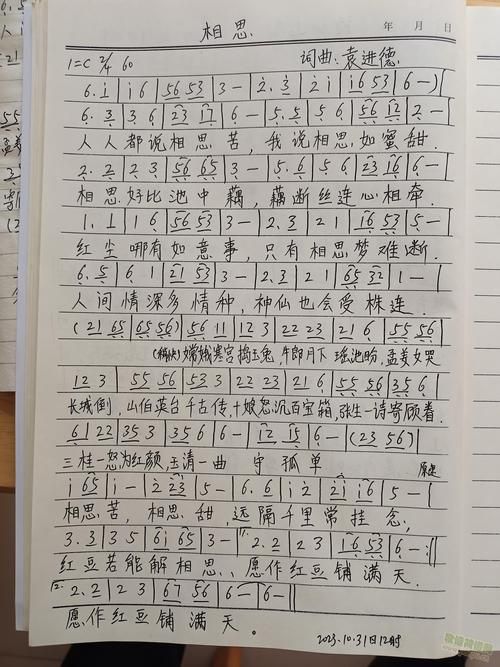 相思
年 月 日
1=C 2/4 60 词曲:袁进德
6. i | i 6 | 56 53 | 3 — | 2. 3 | 2 i | i6 53 | 6 — )
6. 3 | 3 6 | 23 17 | 6 — | 5. 5 | 5 6 | 56 12 | 2 —
人人都说相思苦,我说相思如蜜甜.
2. 2 | 2 3 | 56 65 | 3 — | 5. 6 | 5 6 | 23 16 | 6 —
相思好比池中藕,藕断丝连心相牵.
1. 1 | 1 6 | 56 53 | 3 — | 2. 3 | 2 1 | 16 53 | 5 —
红尘哪有如意事,只有相思梦难断.
6. 5 | 6 1 | 21 53 | 3 — | 2. 3 | 2 1 | 65 32 | 1 —
人间情深多情种,神仙也会受株连.
(21 65 | 65 56) | 56 11 | 12 3 | 22 23 | 21 6 | 55 56
(稍快)嫦娥寒宫捣玉兔,牛郎月下瑶池盼,孟姜女哭
12 3 | 55 56 | 53 3 | 22 23 | 21 6 | 55 56 | 35 6
长城倒,山伯英台千古传,十娘怒沉百宝箱,张生一诗寄顾眷.
61 22 | 35 3 | 35 6 | 6 — | 12 15 | 6 — | (23 56)
三桂一怒为红颜,玉清一曲 守孤单 原速
i 65 | i — | 2 23 | 5 — | 6. 6 | i 2 | 2i i6 | 5 —
相思苦,相思甜,远隔千里常挂念,
3. 3 | 3 5 | 6i 65 | 3 — | 1. 2. 2 | 2 3 | 16 53 | 6 — :||
红豆若能解相思、愿作红豆铺满天.
2. 2. 2 | 2 3 | 67 56 | 6 — | 6 — ||
愿作红豆铺满天。
2023.10.31日12时